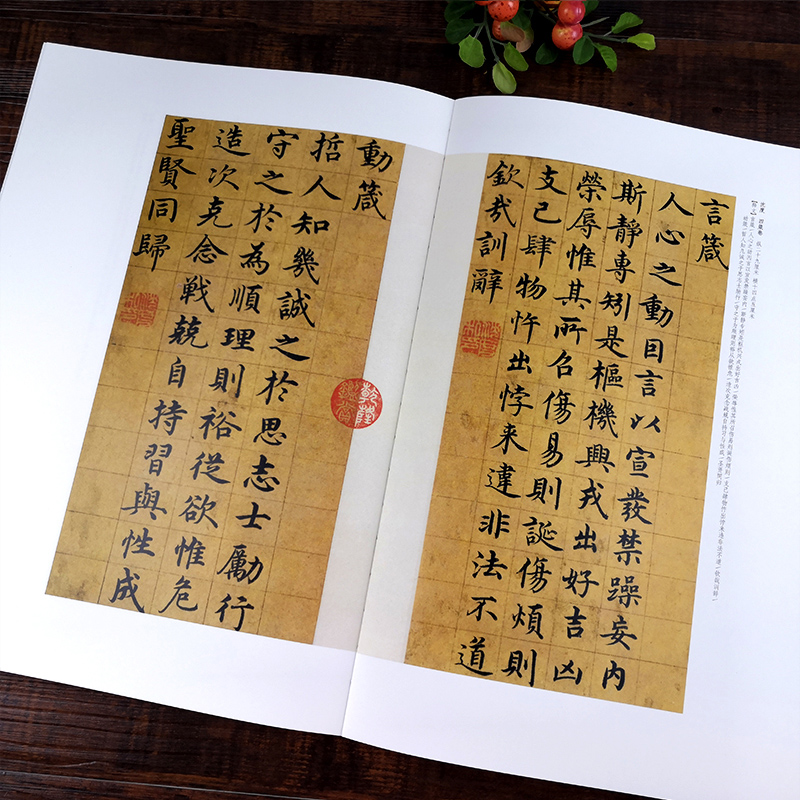 沈度 四箴卷
言箴
人心之動因言以宣發禁躁妄内
斯靜專矧是樞機興戎出好吉凶
榮辱惟其所召傷易則誕傷煩則
支己肆物忤出悖来違非法不道
欽哉訓辭
乾隆鑑賞
動箴
哲人知幾誠之於思志士勵行
守之於為順理則裕從欲惟危
造次克念戰兢自持習與性成
聖賢同歸